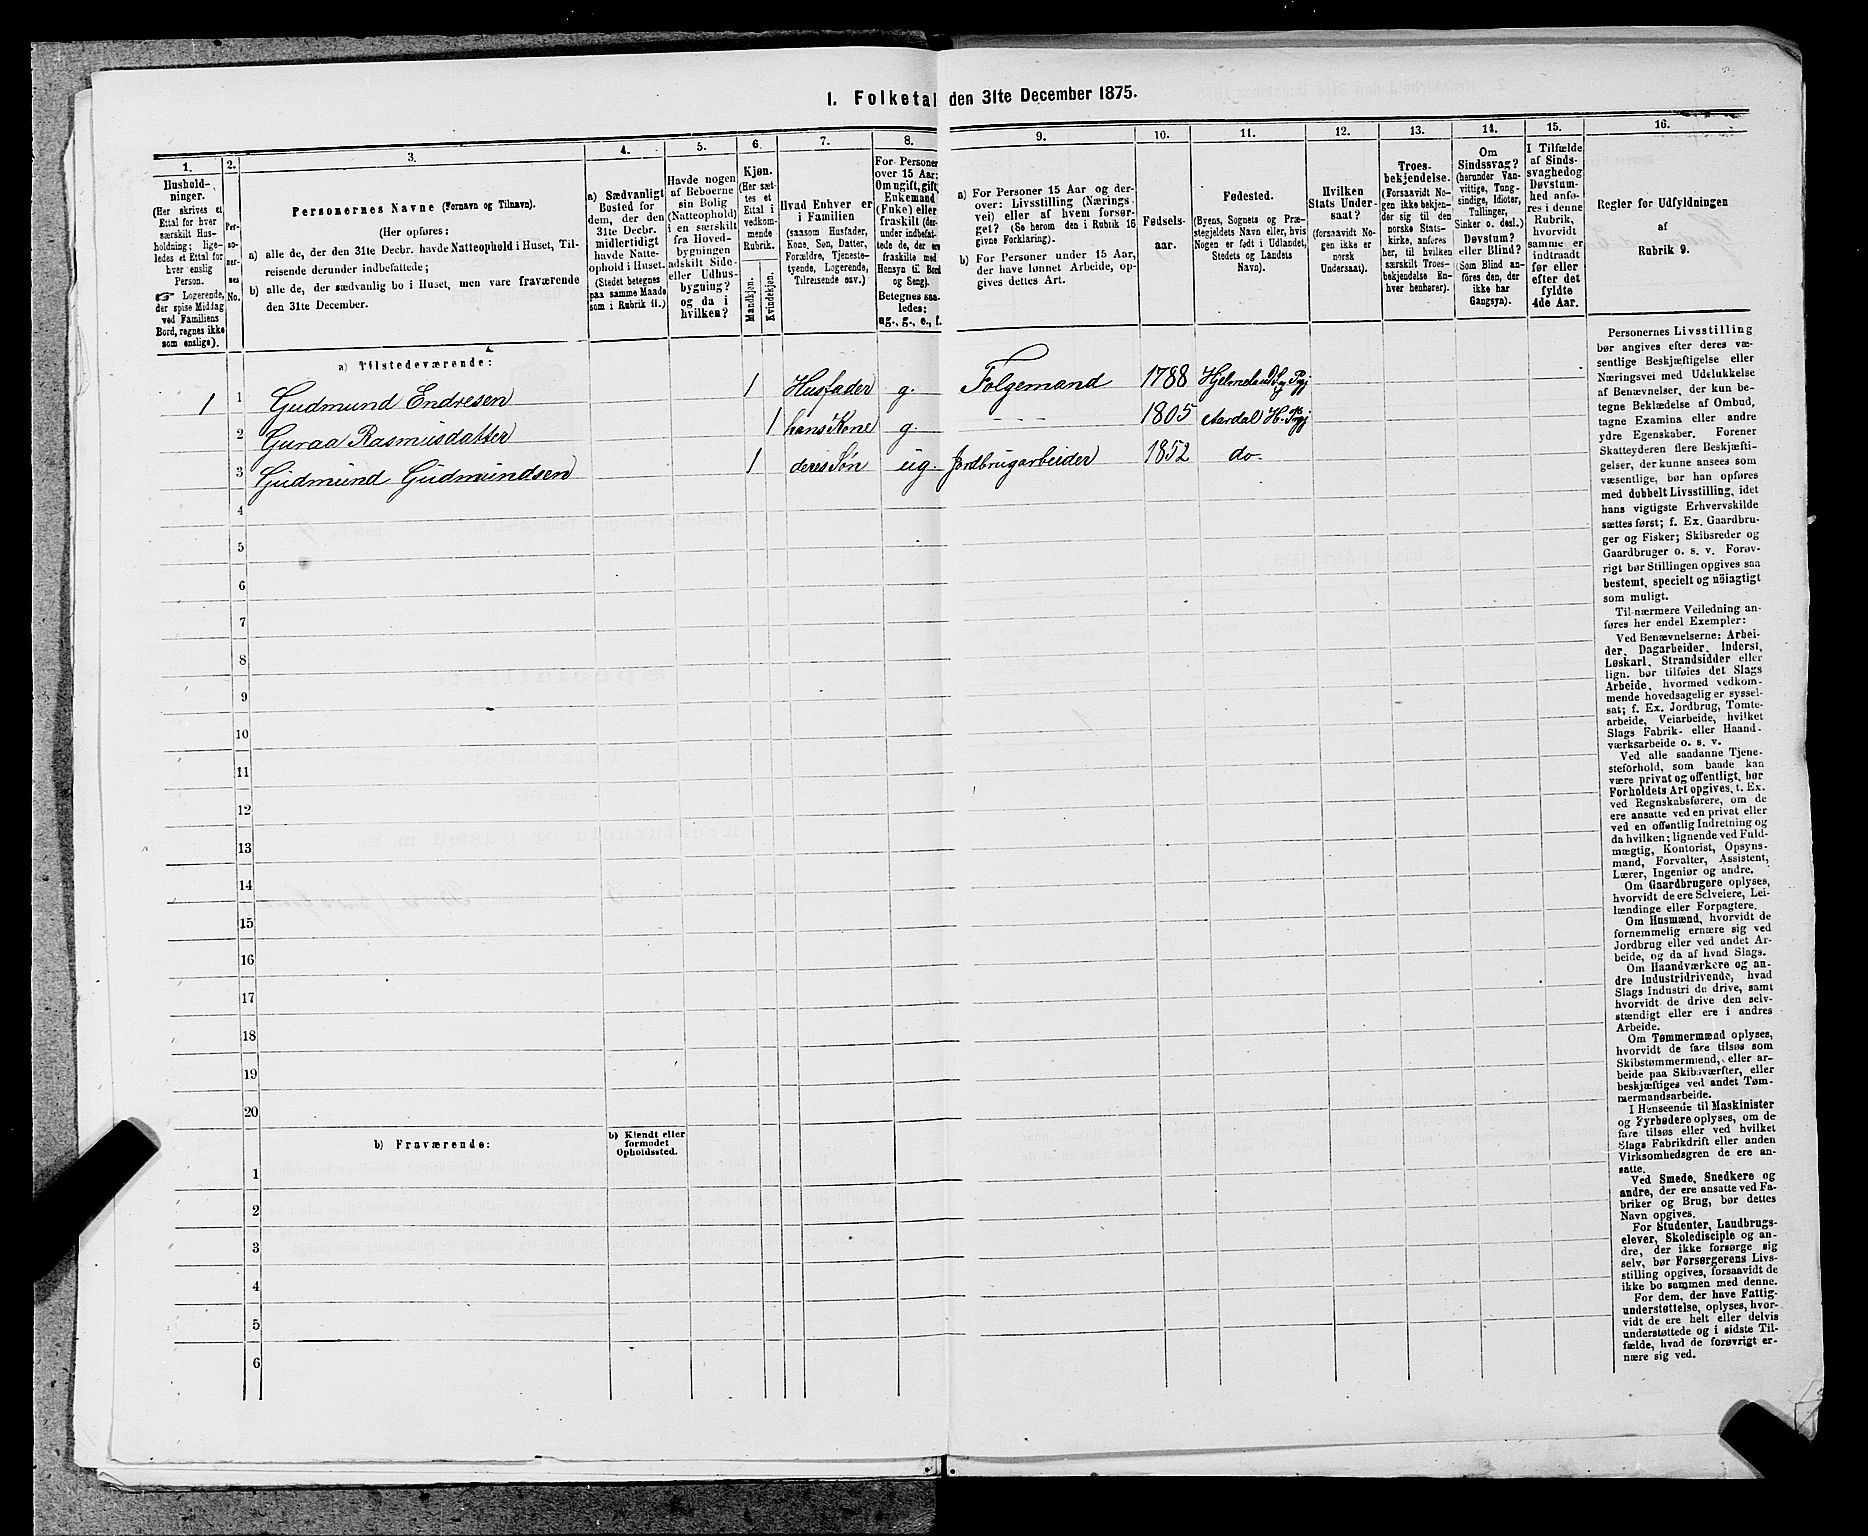 I. Folketal den 31te December 1875.
1. 2. 3. 4. 5. 6. 7. 8. 9. 10. 11. 12. 13. 14. 15. 16.
Hushold-
ninger.
(Her skrives et
Ettal for hver
særskilt Hus-
holdning; lige-
ledes et Ettal for
hver enslig
Person.
☞ Logerende,
der spise Middag
ved Familiens
Bord, regnes ikke
som enslige).
Per-
so-
ner-
nes
No.
Personernes Navne (Fornavn og Tilnavn).
(Her opføres:
a) alle de, der den 31te Decbr. havde Natteophold i Huset, Til-
reisende derunder indbefattede;
b) alle de, der sædvanlig bo i Huset, men vare fraværende
den 31te December.
a) Sædvanligt
Bosted for
dem, der den
31te Decbr.
midlertidigt
havde Natte-
ophold i Huset.
(Stedet betegnes
paa samme Maade
som i Rubrik 11.)
Havde nogen
af Beboerne
sin Bolig
(Natteophold)
i en særskilt
fra Hoved-
bygningen
adskilt Side-
eller Udhus-
bygning?
og da i
hvilken?
Kjøn.
(Her sæt-
tes et
Ettal i
vedkom-
mende
Rubrik.
Mandkjøn.
Kvindekjøn.
Hvad Enhver er
i Familien
(saasom Husfader,
Kone, Søn, Datter,
Forældre, Tjeneste-
tyende, Logerende,
Tilreisende osv.)
For Personer
over 15 Aar:
Om ugift, gift,
Enkemand
(Enke) eller
fraskilt (der-
under indbefat-
tede de, der ere
fraskilte med
Hensyn til Bord
og Seng).
Betegnes saa-
ledes:
ug., g., e., f.
a) For Personer 15 Aar og der-
over: Livsstilling (Nærings-
vei) eller af hvem forsør-
get? (Se herom den i Rubrik 16
givne Forklaring).
b) For Personer under 15 Aar,
der have lønnet Arbeide, op-
gives dettes Art.
Fødsels-
aar.
Fødested.
(Byens, Sognets og Præ-
stegjeldets Navn eller, hvis
Nogen er født i Udlandet,
Stedets og Landets
Navn).
Hvilken
Stats Under-
saat?
(forsaavidt No-
gen ikke er
norsk
Undersaat).
Troes-
bekjendelse.
(Forsaavidt No-
gen ikke bekjen-
der sig til den
norske Stats-
kirke, anføres
her, til hvilken
særskilt Troes-
bekjendelse En-
hver henhører).
Om
Sindssvag?
(herunder Van-
vittige, Tung-
sindige, Idioter,
Tullinger,
Sinker o. desl.).
Døvstum?
eller Blind?
(Som Blind an-
føres den, der
ikke har
Gangsyn).
I Tilfælde
af Sinds-
svaghed og
Døvstum-
hed anfø-
res i denne
Rubrik,
hvorvidt
samme er
indtraadt
før eller
efter det
fyldte
4de Aar.
Regler for Udfyldningen
af
Rubrik 9.
a) Tilstedeværende:
1 1 Gudmund Endresen 1 Husfader g. Folgemand 1788 Hjelmeland
2 Guraa Rasmusdatter 1 hans Kone g. - - - 1805 Aardal
3 Gudmund Gudmundsen 1 deres Søn ug. Jordbrugarbeider 1852 do
4
5
6
7
8
9
10
11
12
13
14
15
16
17
18
19
20
b) Fraværende:
b) Kjendt eller
formodet
Opholdssted.
1
2
3
4
5
6
Personernes Livsstilling
bør angives efter deres væ-
sentlige Beskjæftigelse eller
Næringsvei med Udelukkelse
af Benævnelser, der kun be-
tegne Beklædelse af Ombud,
tagne Examina eller andre
ydre Egenskaber. Forener
Skatteyderen flere Beskjæfti-
gelser, der kunne ansees som
væsentlige, bør han opføres
med dobbelt Livsstilling, idet
hans vigtigste Erhvervskilde
sættes først; f. Ex. Gaardbru-
ger og Fisker; Skibsreder og
Gaardbruger o. s. v. Forøv-
rigt bør Stillingen opgives saa
bestemt, specielt og nöiagtigt
som muligt.
Til nærmere Veiledning an-
føres her endel Exempler:
Ved Benævnelserne: Arbei-
der, Dagarbeider, Inderst,
Løskarl, Strandsidder eller
lign. bør tilføies det Slags
Arbeide, hvormed vedkom-
mende hovedsagelig er syssel-
sat; f. Ex. Jordbrug, Tomte-
arbeide, Veiarbeide, hvilket
Slags Fabrik- eller Haand-
værksarbeide o. s. v.
Ved alle saadanne Tjene-
steforhold, som baade kan
være privat og offentligt, bør
Forholdets Art opgives, t. Ex.
ved Regnskabsførere, om de
ere ansatte ved en privat eller
ved en offentlig Indretning og
da hvilken; lignende ved Fuld-
mægtig, Kontorist, Opsyns-
mand, Forvalter, Assistent,
Lærer, Ingeniør og andre.
Om Gaardbrugere oplyses,
hvorvidt de ere Selveiere, Lei-
lændinge eller Forpagtere.
Om Husmænd, hvorvidt de
fornemmelig ernære sig ved
Jordbrug eller ved andet Ar-
beide, og da af hvad Slags.
Om Haandværkere og an-
dre Industridrivende, hvad
Slags Industri de drive, samt
hvorvidt de drive den selv-
stændigt eller ere i andres
Arbeide.
Om Tømmermænd oplyses,
hvorvidt de fare tilsøs som
Skibstømmermænd, eller ar-
beide paa Skibsværfter, eller
beskjæftiges ved andet Tøm-
mermandsarbeide.
I Henseende til Maskinister
og Fyrbødere oplyses, om de
fare tilsøs eller ved hvilket
Slags Fabrikdrift eller anden
Virksomhedsgren de ere an-
satte.
Ved Smede, Snedkere og
andre, der ere ansatte ved Fa-
briker og Brug, bør dettes
Navn opgives.
For Studenter, Landbrugs-
elever, Skoledisciple og an-
dre, der ikke forsørge sig
selv, bør Forsørgerens Livs-
stilling opgives, forsaavidt de
ikke bo sammen med denne.
For dem, der have Fattig-
understøttelse, oplyses, hvor-
vidt de ere helt eller delvis
understøttede og i sidste Til-
fælde, hvad de forøvrigt er-
nære sig ved.